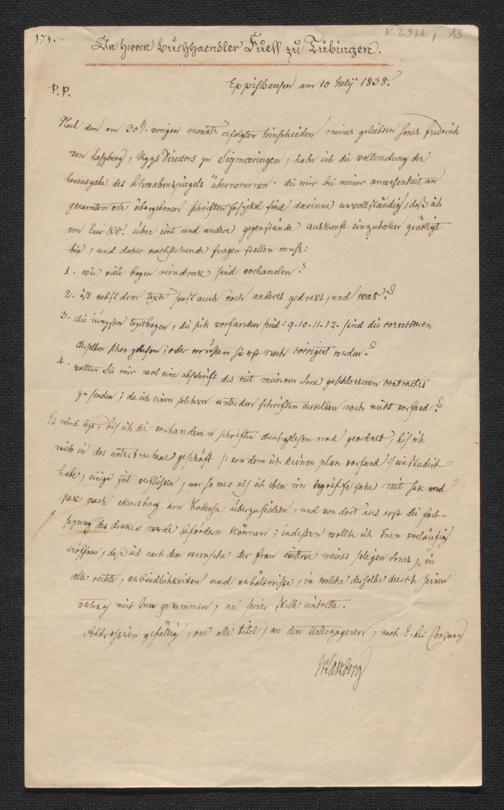 171.
K 2911, 13
An Herrn Buchhaendler Fueß zu Tübingen.
P.P.
Eppishausen am 10 July 1838.
Nach dem am 30ten vorigen monats erfolgten hinscheiden meines geliebten Sones Friderich
von Laszberg, Directors zu Sigmaringen, habe ich die vollendung der
herausgabe des Schwabenspiegels übernommen. die mir bei meiner anwesenheit an
genanntem orte übergebenen schriften sind darinne unvollständig, daß ich
von Eur über eint und andere gegenstände auskunft einzuholen genötigt
bin, und daher nachstehende fragen stellen muß:
1. wie viele bogen reindruck sind vorhanden?
2. ist nebst dem texte sonst auch noch anderes gedrukt, und was?
3. die iüngsten textbogen, die sich vorfanden sind: 9.10.11.12. sind die correcturen
derselben schon gelesen; oder müssen sie erst noch corrigirt werden?
4. wollten Sie mir wol eine abschrift des mit meinem Sone geschlossenen contractes
zusenden; da ich einen solchen unter den schriften desselben noch nicht vorfand?
Es wird izt, bis ich die vorhandenen schriften durchgelesen und geordnet, bis ich
mich in das unterbrochene geschäft; von dem ich keinen plan vorfand, einstudiert
habe, einige zeit verfliessen, um so mer als ich eben im begriffe stehe mit sak und
pak nach Meersburg am Bodensee überzusidlen, und von dort aus erst die fort-
sezung des drukes werde befördern können; indessen wollte ich Inen vorläufig
eröffnen, daß ich nach dem wunsche der frau wittwe meines seligen Sones, in
alle rechte, verbindlichkeiten und verhältnisse, in welche derselbe durch seinen
vertrag mit Inen gekommen, an seine stelle eintrette.
Addressiren gefällig, one alle titel, an den unterzogenen, nach E. bei Constanz
JvLaszberg